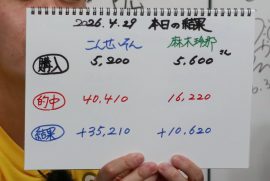 2026.4.29 本日の結果
こんせいそん 麻木玲那さん
購入 5,200 5,600
的中 40,410 16,220
結果 +35,210 +10,620